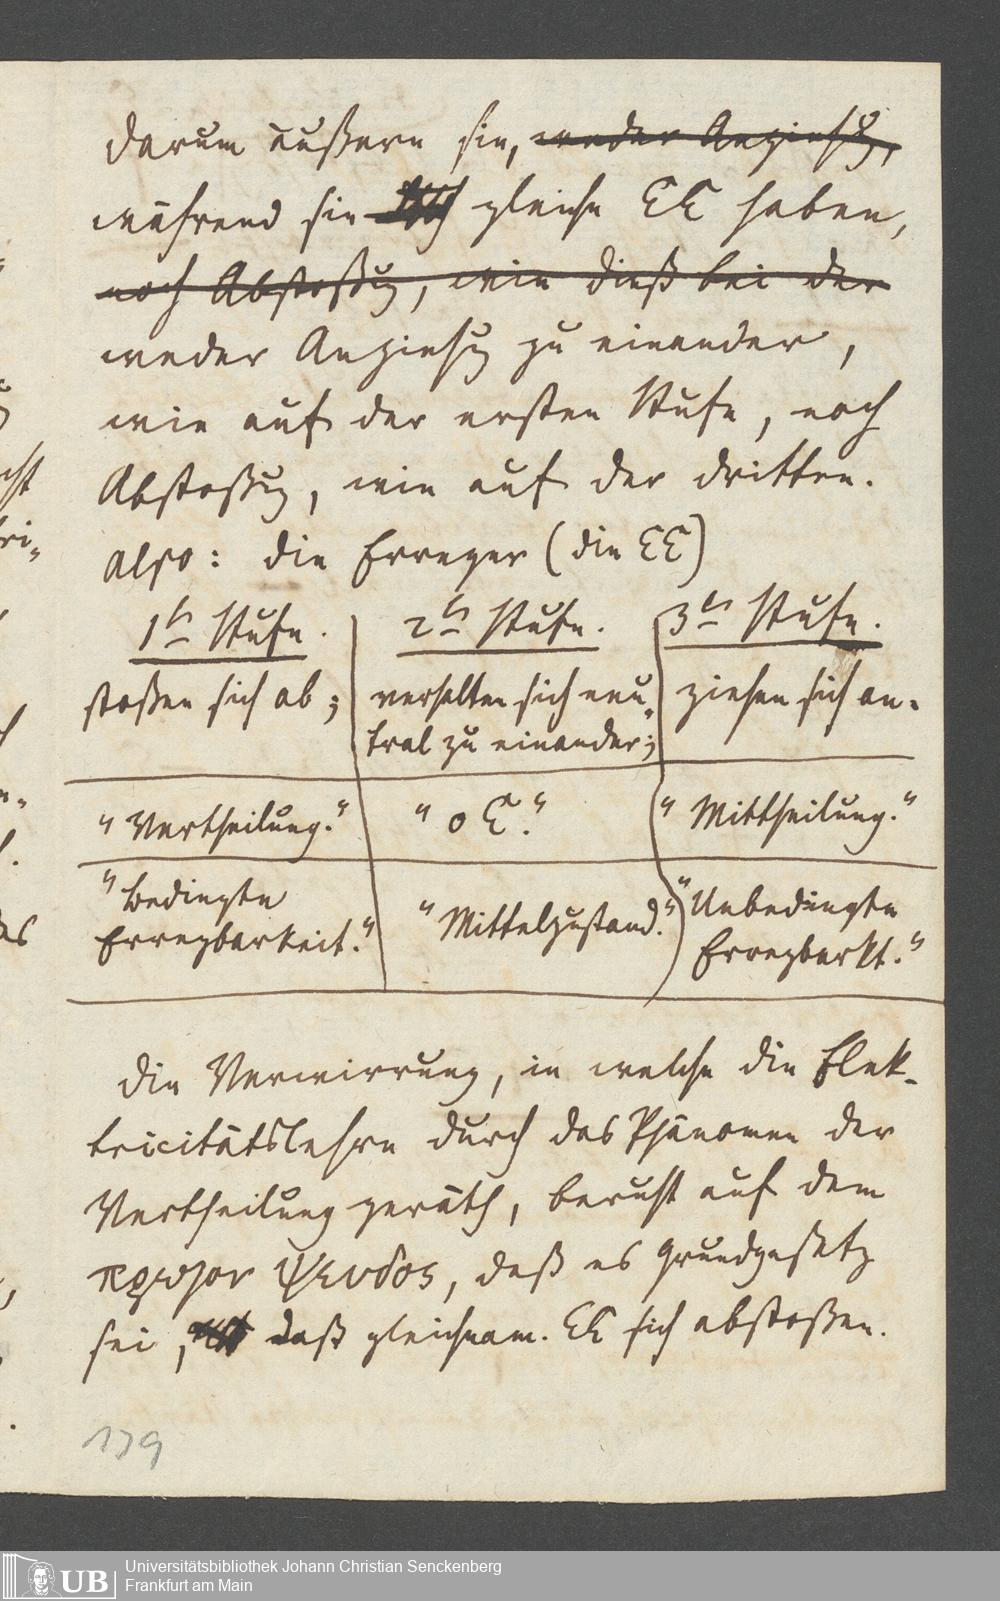 darum äußern sie, weder Anziehung,
während sie gleiche EE haben,
noch Abstoßung, wie dieß bei der
weder Anziehung zu einander,
wie auf der ersten Stufe, noch
Abstoßung, wie auf der dritten.
Also: die Erreger (die EE)
1te Stufe. 2te Stufe. 3te Stufe.
stoßen sich ab; verhalten sich neu- ziehen sich an.
tral zu einander;
"Vertheilung." "0 E." "Mittheilung."
"Bedingte "Mittelzustand." "Unbedingte
Erregbarkeit." Erregbarkt."
Die Verwirrung, in welche die Elek-
tricitätslehre durch das Phänomen der
Vertheilung geräth, beruht auf dem
πρωτον ψευδος, daß es Grundgesetz
sei, daß gleichnam. EE sich abstoßen.
179
UB
Universitätsbibliothek Johann Christian Senckenberg
Frankfurt am Main